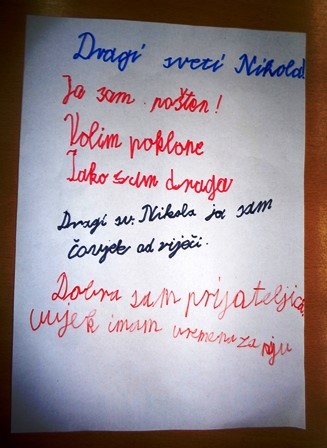 Dragi sveti Nikola!
Ja sam pošten!
Volim poklone
Iako sam draga
Dragi sv. Nikola ja sam
čovjek od riječi.
Dobra sam prijateljica
Uvijek imam vremena za nju